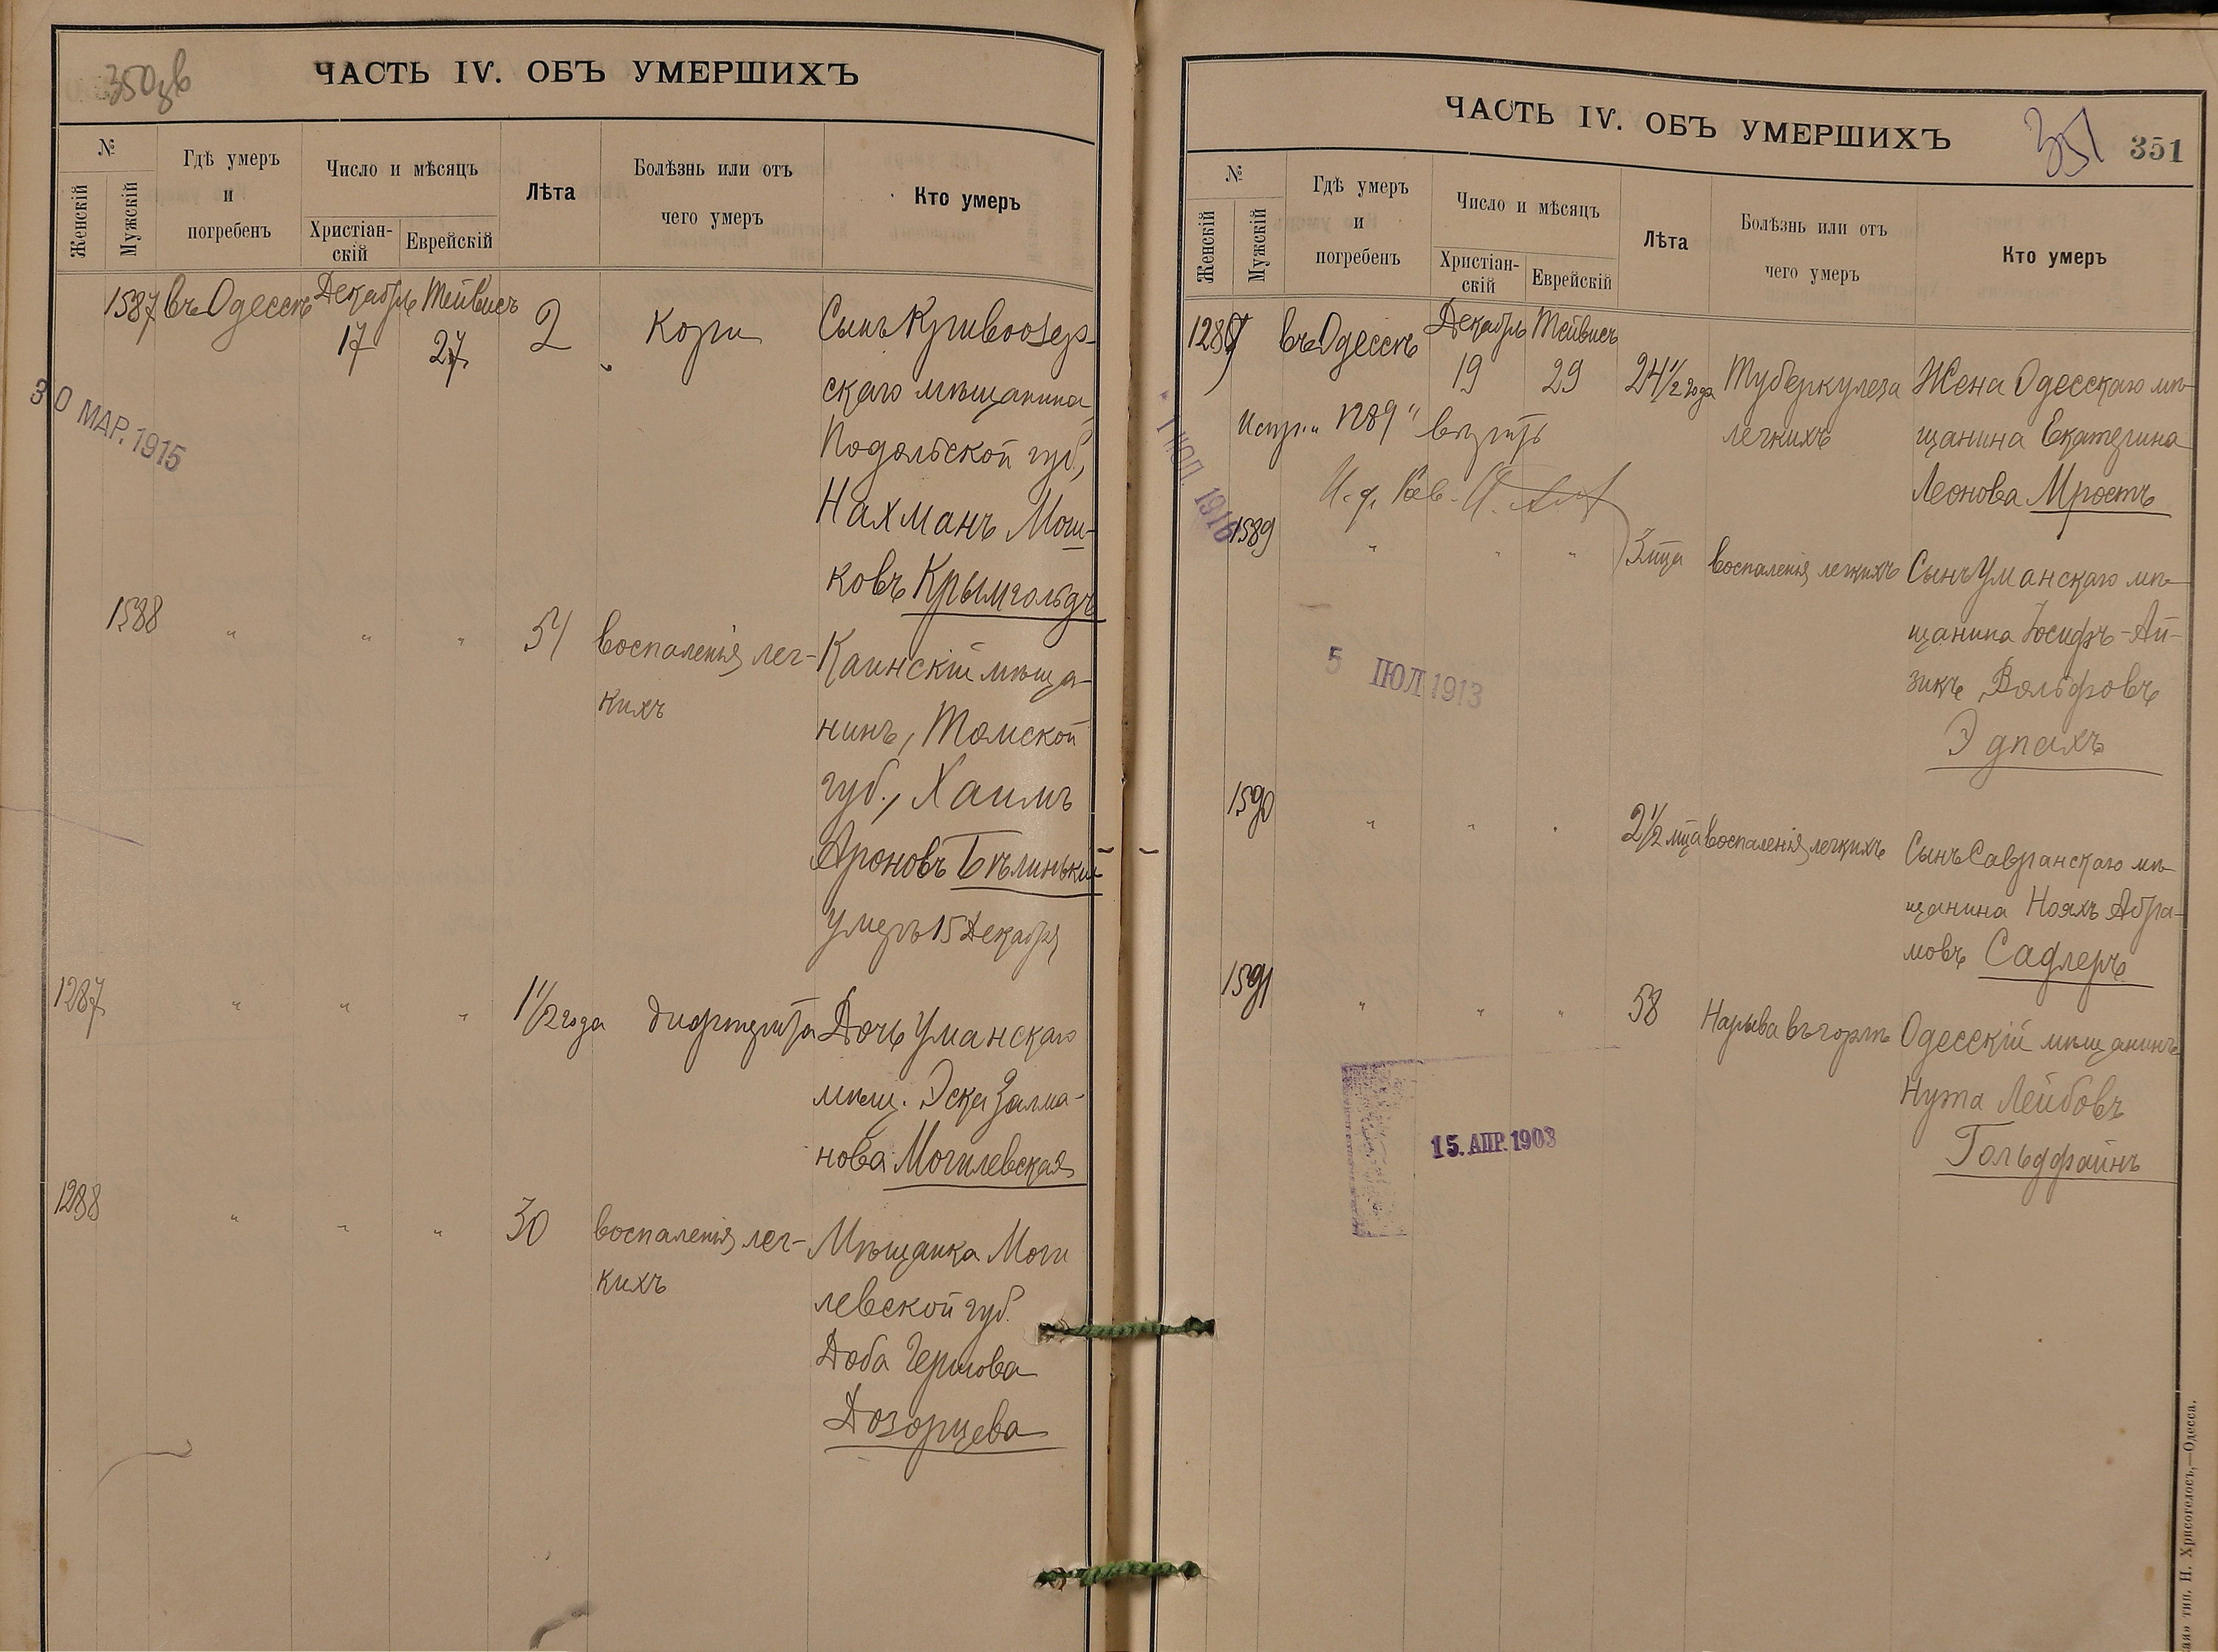 350зв
ЧАСТЬ IV. ОБЪ УМЕРШИХЪ
№
Женскій
Мужскій
Гдѣ умеръ
и
погребенъ
Число и мѣсяцъ
Христіан-
скій
Еврейскій
Лѣта
Болѣзнь или отъ
чего умеръ
Кто умеръ
1587 въ Одессѣ Декабрь 17 Тейвисъ 27 2 Кори Сынъ Кривоозер-
скаго мѣщанина
Подольской губ.,
Нахманъ Мош-
ковъ Крымгольдъ
30 МАР. 1915
1588 " " " 51 воспаленія лег- Каинскій мѣща-
кихъ нинъ, Томской
губ., Хаимъ
Ароновъ Бѣлинькій
умеръ 15 Декабря
1287 " " " 1 1/2 года дифтерита Дочь Уманскаго
мѣщ. Эска Залма-
нова Могилевская
1288 " " " 30 воспаленія лег- Мѣщанка Моги
кихъ левской губ.
Доба Гершова
Дозорцева
ЧАСТЬ IV. ОБЪ УМЕРШИХЪ
351
351
№
Женскій
Мужскій
Гдѣ умеръ
и
погребенъ
Число и мѣсяцъ
Христіан-
скій
Еврейскій
Лѣта
Болѣзнь или отъ
чего умеръ
Кто умеръ
въ Одессѣ Декабрь 19 Тейвисъ 29 24 1/2 года Туберкулеза Жена Одесскаго мѣ-
легкихъ щанина Екатерина
Леонова Мростъ
Испр. " 1289 " вѣрить
И. д. Рав.
1 ІЮЛ. 1916
1589 " " " 3 мца воспаленія легкихъ Сынъ Уманскаго мѣ-
щанина Іосифъ-Ай-
зикъ Вольфовъ
Эдпахъ
5 ІЮЛ 1913
1590 " " " 2 1/2 мца воспаленія легкихъ Сынъ Савранскаго мѣ-
щанина Нояхъ Абра-
мовъ Садлеръ
1591 " " " 58 Нарыва въ горлѣ Одесскій мѣщанинъ
Нута Лейбовъ
Гольдфайнъ
15. АПР. 1903
тип. Н. Хрисогелосъ,—Одесса.